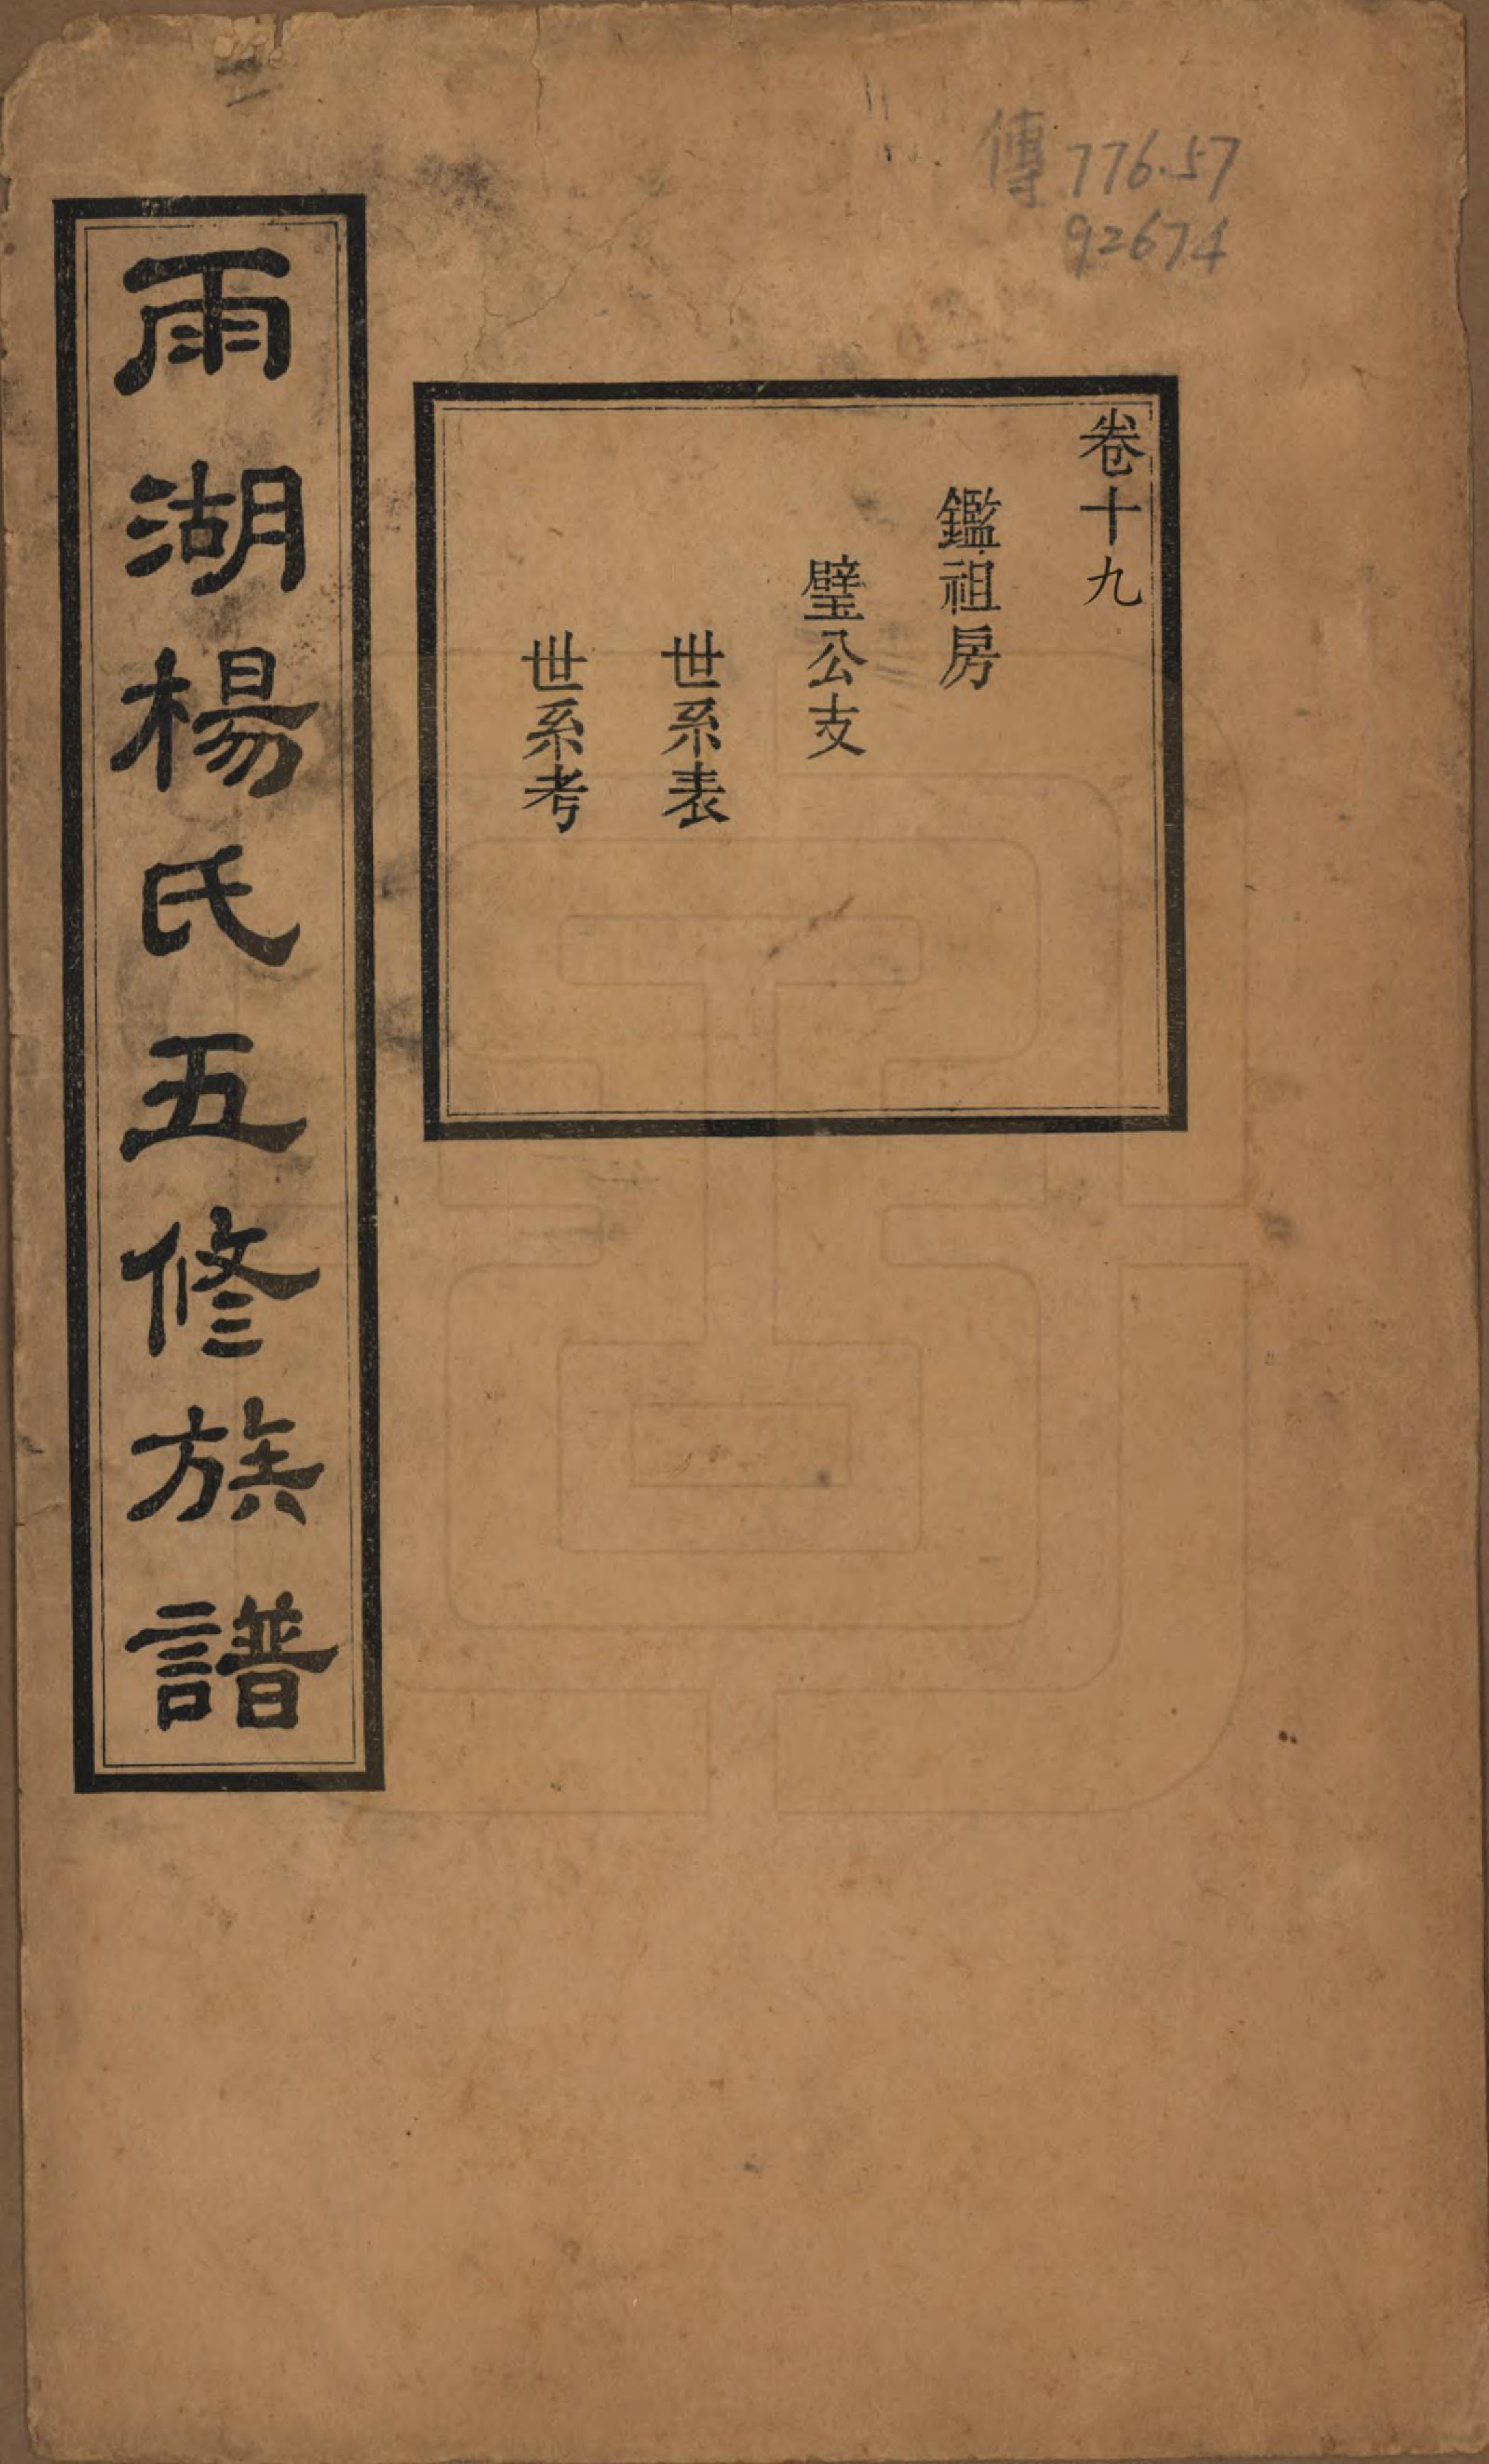 傳 776.57
92674
卷十九
鑑祖房
璧公支
世系表
世系考
雨湖楊氏五修族譜